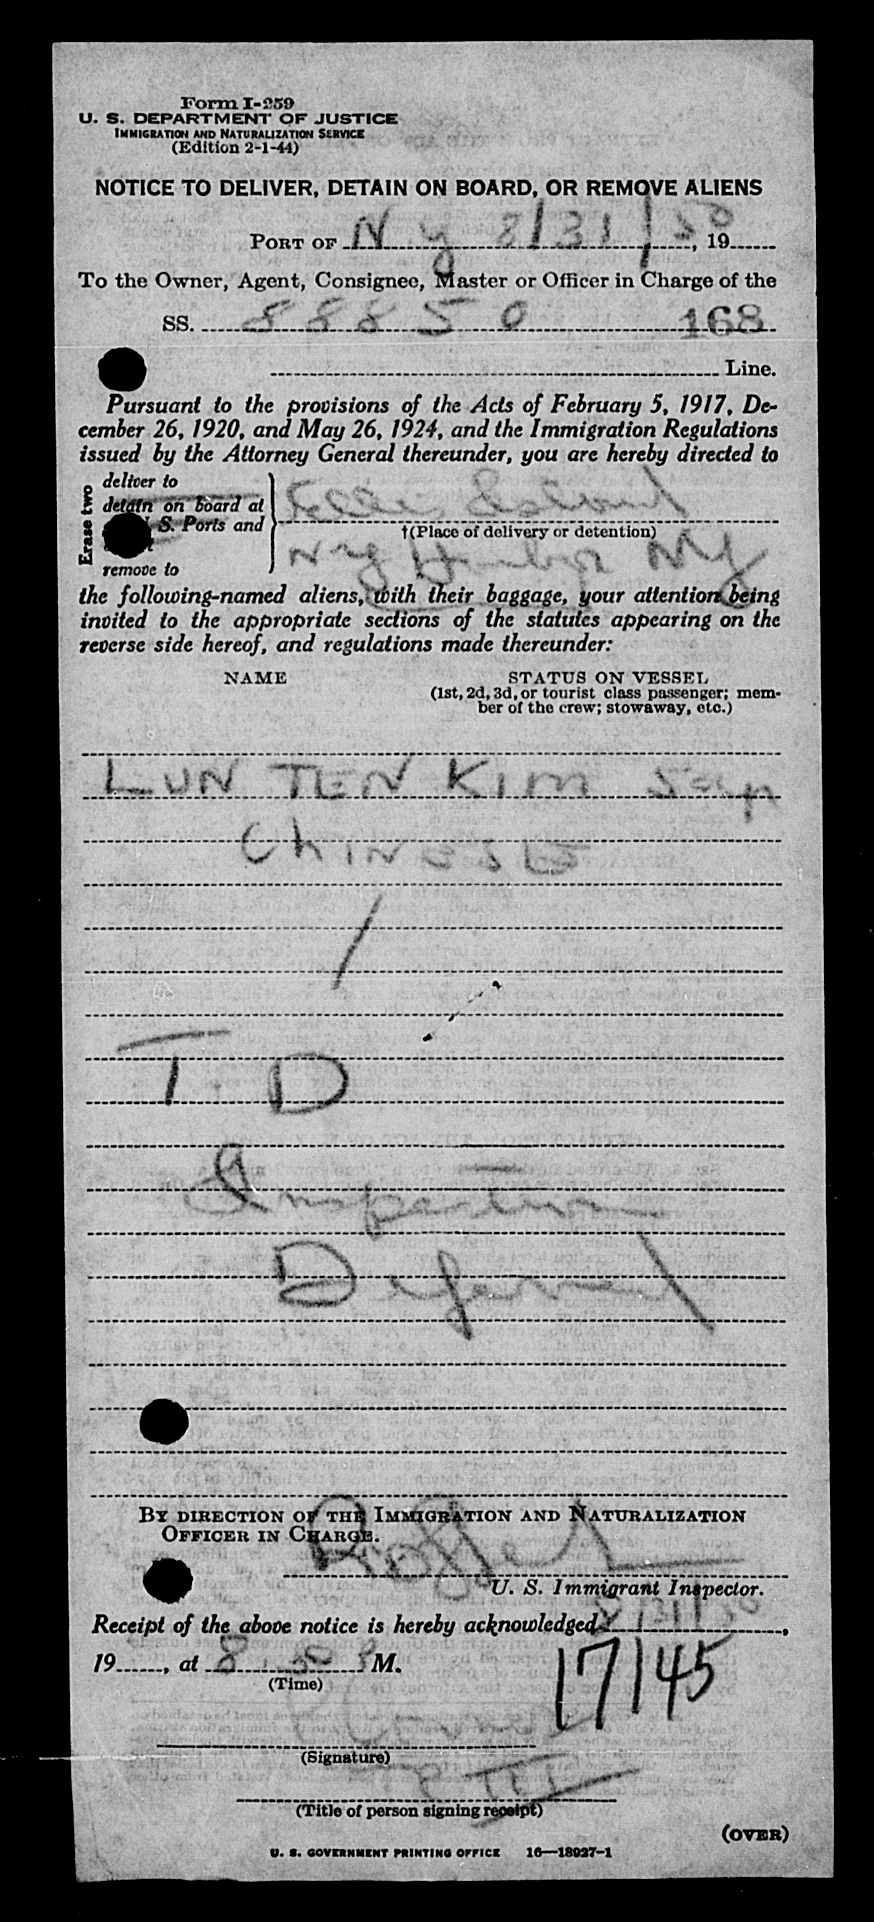 Form I-259
U. S. DEPARTMENT OF JUSTICE
IMMIGRATION AND NATURALIZATION SERVICE
(Edition 2-1-44)
NOTICE TO DELIVER, DETAIN ON BOARD, OR REMOVE ALIENS
PORT OF N Y 8/31/50, 19
To the Owner, Agent, Consignee, Master or Officer in Charge of the
SS. 88850 168
Line.
Pursuant to the provisions of the Acts of February 5, 1917, De-
cember 26, 1920, and May 26, 1924, and the Immigration Regulations
issued by the Attorney General thereunder, you are hereby directed to
Erase two
deliver to
detain on board at
S. Ports and
remove to
Ellis Island
†(Place of delivery or detention)
NY Harbor NY
the following-named aliens, with their baggage, your attention being
invited to the appropriate sections of the statutes appearing on the
reverse side hereof, and regulations made thereunder:
NAME STATUS ON VESSEL
(1st, 2d, 3d, or tourist class passenger; mem-
ber of the crew; stowaway, etc.)
LUN TEN KIM
CHINESE
T. D
Inspection
Deferred
BY DIRECTION OF THE IMMIGRATION AND NATURALIZATION
OFFICER IN CHARGE.
U. S. Immigrant Inspector.
Receipt of the above notice is hereby acknowledged 8/31/50,
19, at 8.50 P M.
(Time)
17145
(Signature)
(Title of person signing receipt)
(OVER)
U. S. GOVERNMENT PRINTING OFFICE 16—18927-1